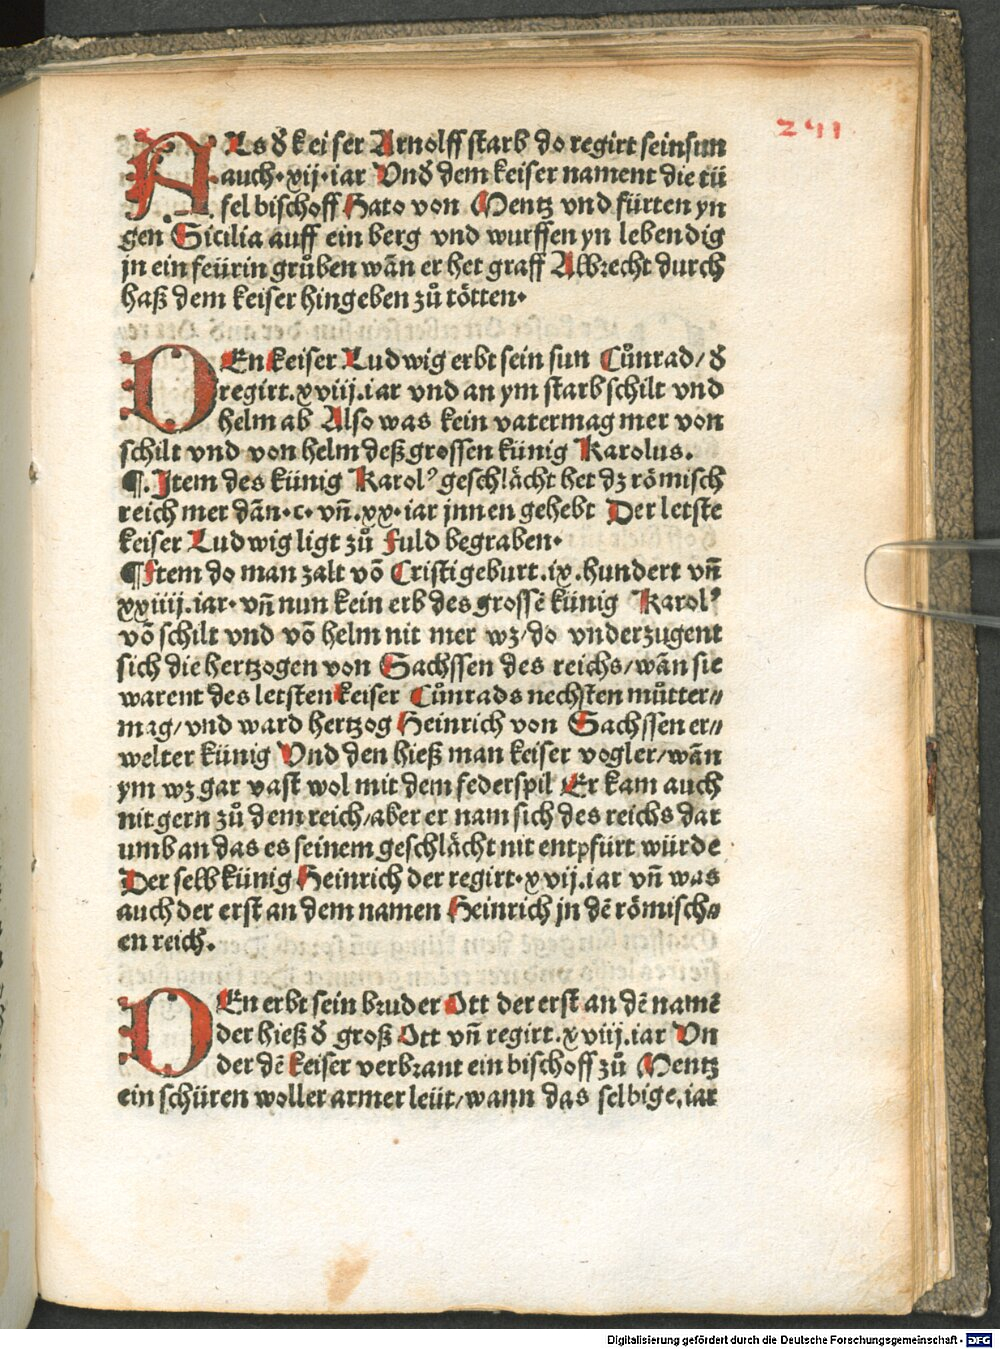 241
ALs d̕ keiser Arnolff starb do regirt sein sun
auch·xij·iar Vnd̕ dem keiser nament die tü
fel bischoff Hato von Mentz vnd fürten yn
gen Sicilia auff ein berg vnd wurffen yn lebendig
jn ein feürin grůben wãn er het graff Albrecht durch
haß dem keiser hin geben zů tötten·
DEn keiser Ludwig erbt sein sun Cůnrad/d̕
regirt.xviij.iar vnd an ym starb schilt vnd
helm ab Also was kein vatermag mer von
schilt vnd von helm deß grossen künig Karolus.
¶. Jtem des künig Karolꝰ geschlächt het dz römisch
reich mer dãn·c·vñ.xx·iar jnnen gehebt Der letste
keiser Ludwig ligt zů Fuld begraben·
¶Jtem do man zalt võ Cristi geburt.ix.hundert vñ
xxiiij.iar·vñ nun kein erb des grossẽ künig Karolꝰ
võ schilt vnd võ helm nit mer wz/do vnderzugent
sich die hertzogen von Sachssen des reichs/wãn sie
warent des letsten keiser Cůnrads nechsten můtter//
mag/vnd ward hertzog Heinrich von Sachssen er//
welter künig Vnd den hieß man keiser vogler/wãn
ym wz gar vast wol mit dem federspil Er kam auch
nit gern zů dem reich/aber er nam sich des reichs dar
umb an das es seinem geschlächt nit entpfürt würde
Der selb künig Heinrich der regirt·xvij.iar vñ was
auch der erst an dem namen Heinrich jn dẽ römisch//
en reich.
DEn erbt sein bruder Ott der erst an dẽ namẽ
der hieß d̕ groß Ott vñ regirt.xviij.iar Vn
der dẽ keiser verbrant ein bischoff zů Mentz
ein schüren woller armer leüt/wann das selbige.iar
Digitalisierung gefördert durch die Deutsche Forschungsgemeinschaft - DFG